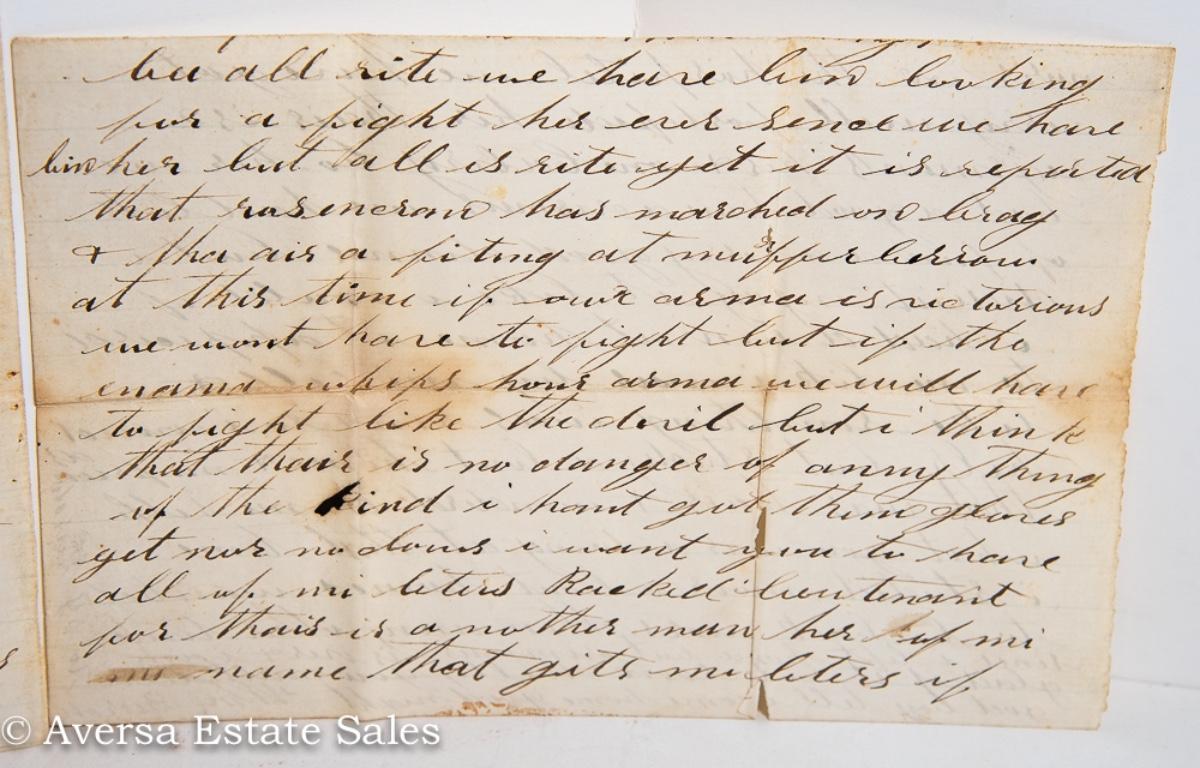 bee all rite we have bin looking
for a fight her ever sence we have
bin her but all is rite yet it is reported
that rosencran has marched on brag
& tha air a fiting at murfferberrow
at this time if our arma is victorious
we wont have to fight but if the
enama whips hour arma we will have
to fight like the devil but i think
that thair is no danger of anny thing
of the kind i hant got them gloves
yet nor no clows i want you to have
all of mi leters Backed lieutenant
for thair is a nother man her of mi
mi name that gits mi leters if
© Aversa Estate Sales